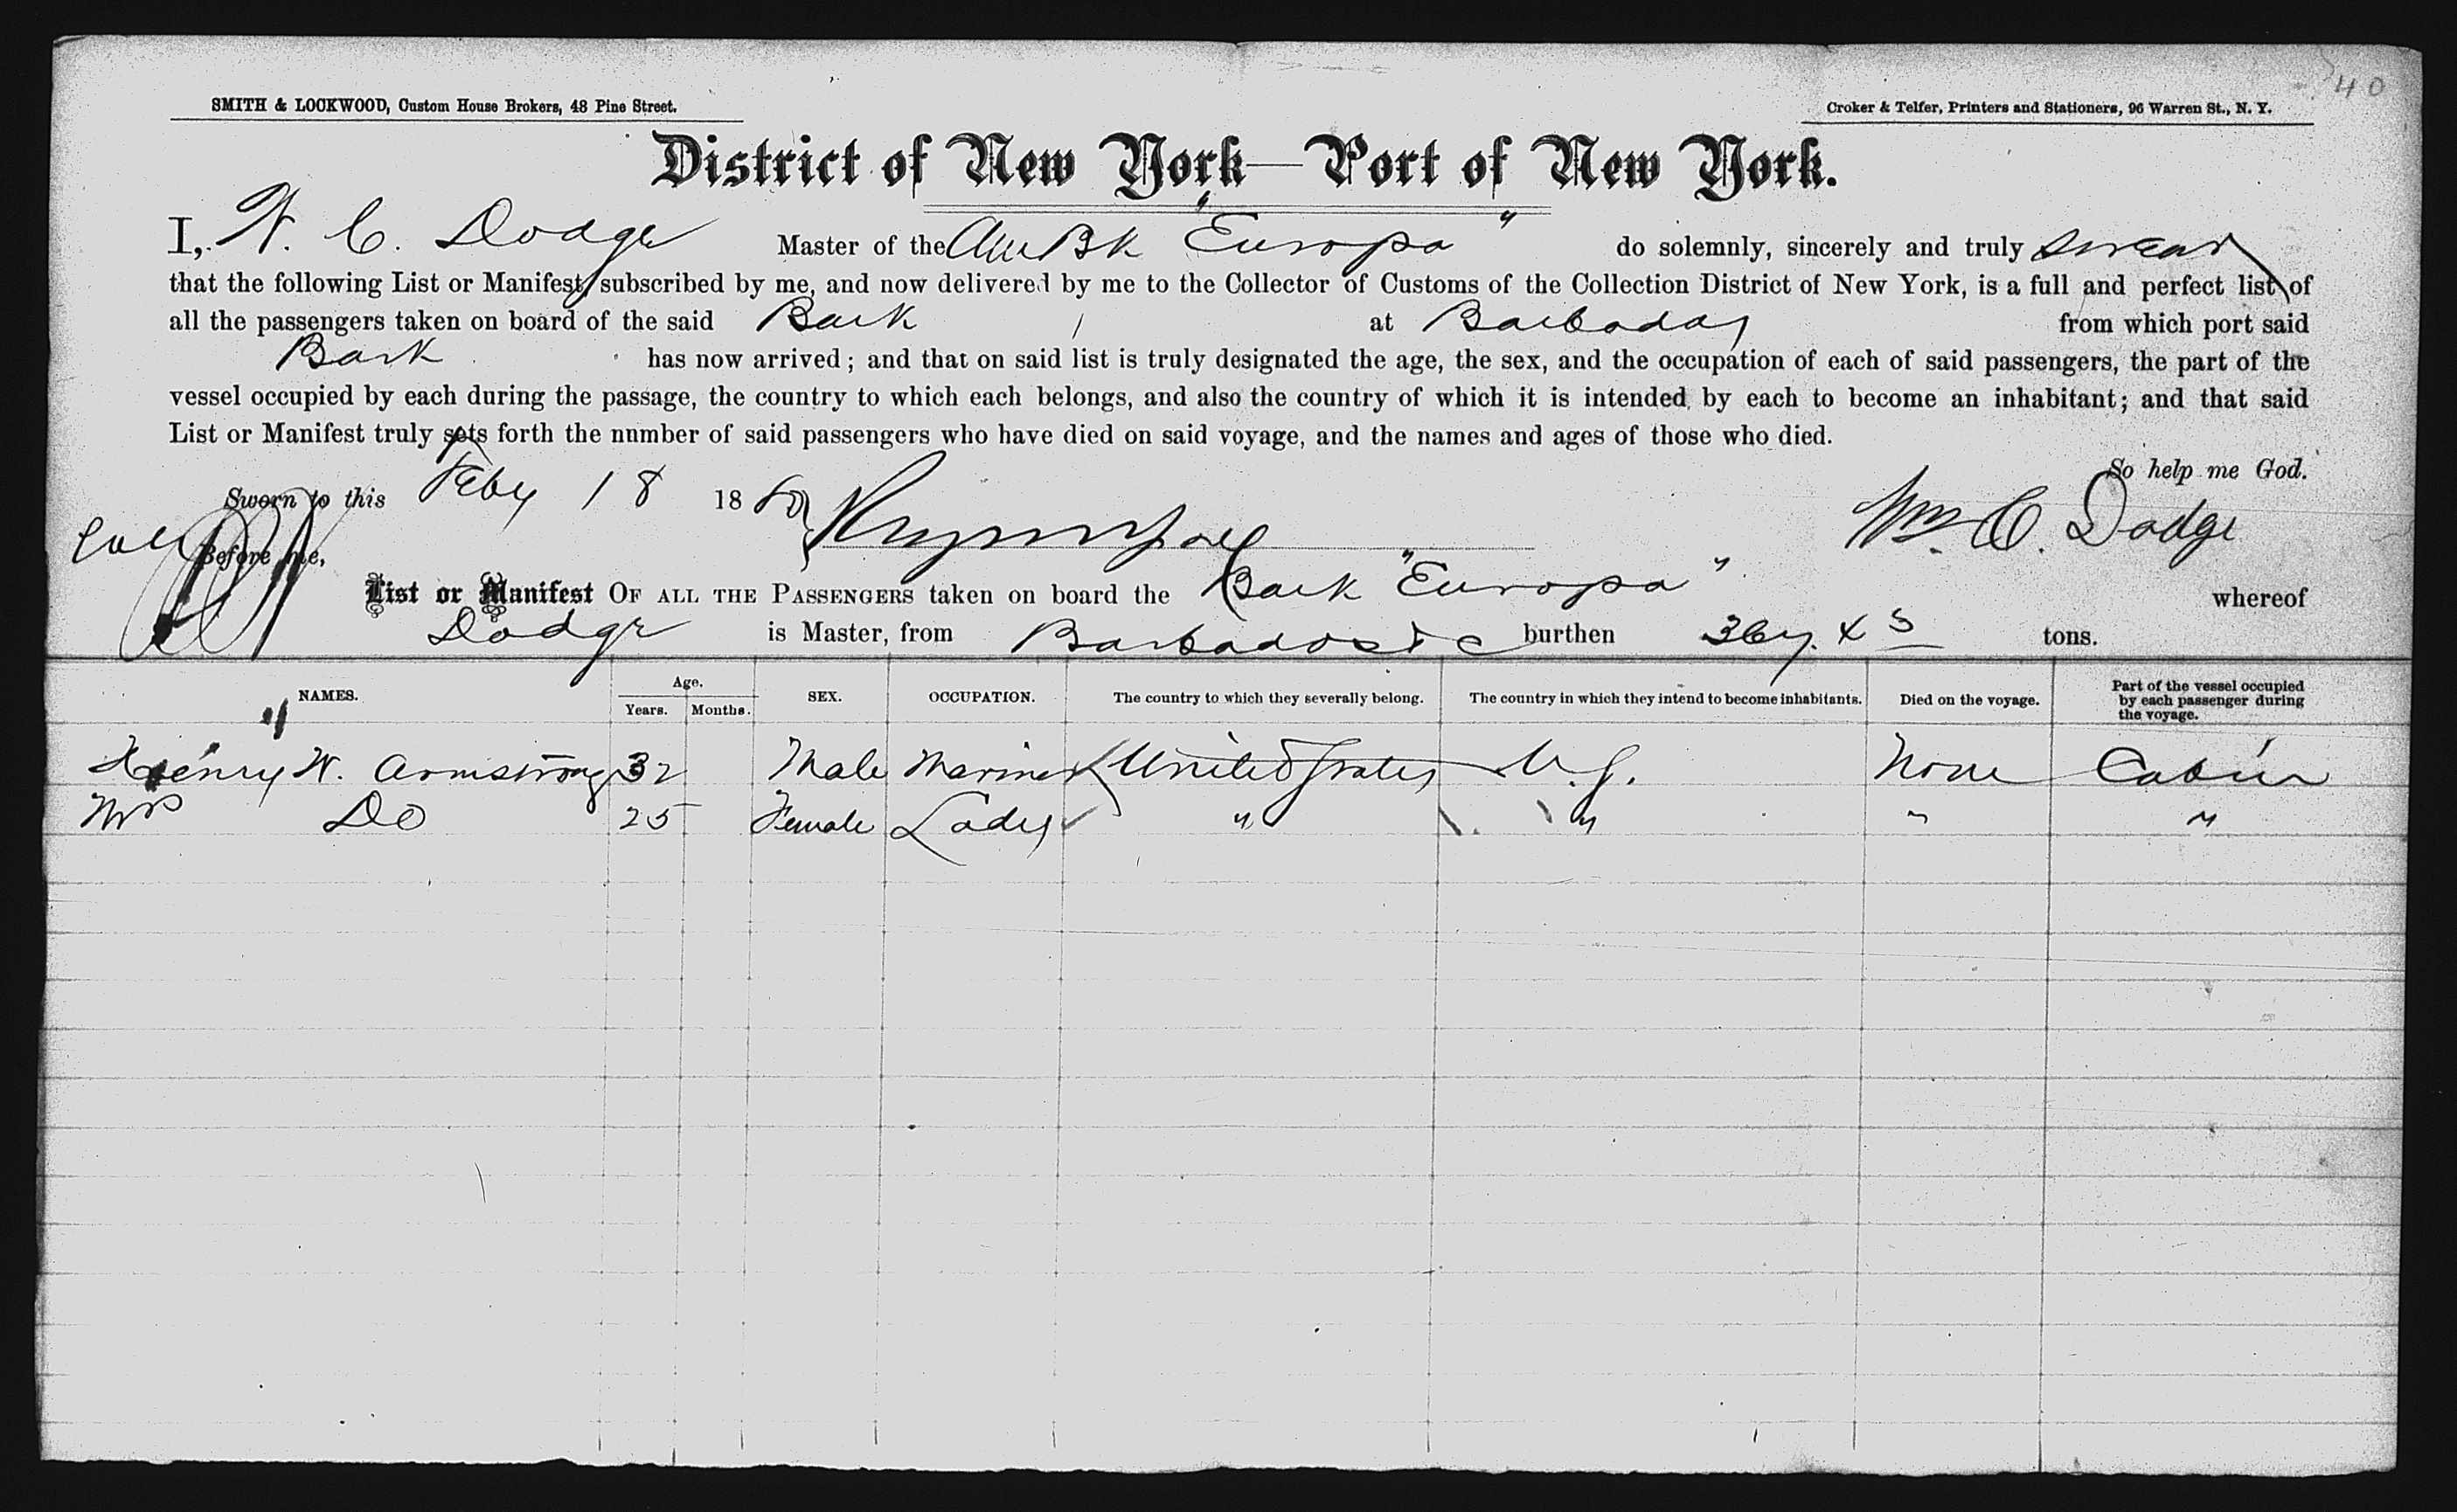 40
SMITH & LOCKWOOD, Custom House Brokers, 48 Pine Street.
Croker & Telfer, Printers and Stationers, 96 Warren St., N. Y.
District of New York—Port of New York.
I, W. C. Dodge Master of the Am Bk "Europa" do solemnly, sincerely and truly swear
that the following List or Manifest, subscribed by me, and now delivered by me to the Collector of Customs of the Collection District of New York, is a full and perfect list of
all the passengers taken on board of the said Bark at Barbados from which port said
Bark has now arrived; and that on said list is truly designated the age, the sex, and the occupation of each of said passengers, the part of the
vessel occupied by each during the passage, the country to which each belongs, and also the country of which it is intended by each to become an inhabitant; and that said
List or Manifest truly sets forth the number of said passengers who have died on said voyage, and the names and ages of those who died.
So help me God.
Sworn to this Feby 18 1880
Wm. C. Dodge
Before me,
List or Manifest OF ALL THE PASSENGERS taken on board the Bark "Europa" whereof
Dodge is Master, from Barbados &c burthen tons.
NAMES. Age. Years. Months. SEX. OCCUPATION. The country to which they severally belong. The country in which they intend to become inhabitants. Died on the voyage. Part of the vessel occupied by each passenger during the voyage.
Henry W. Armstrong 32 Male Mariner United States U. S. None Cabin
Mrs Do 25 Female Lady " " " "